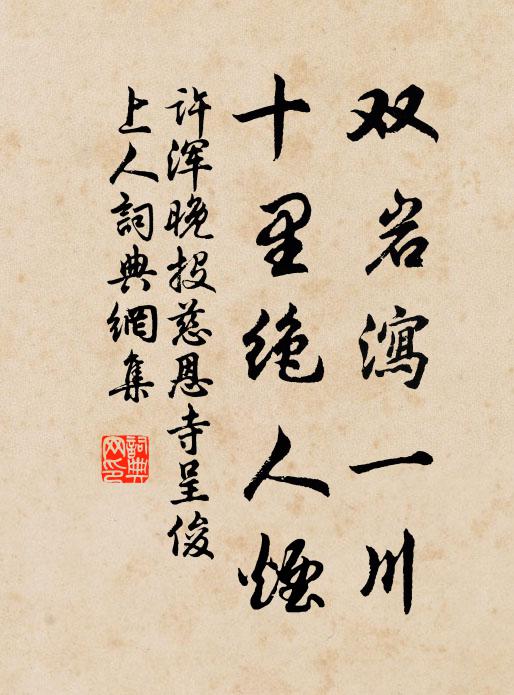 双岩瀉一川
十里绝人煙
许浑晚投慈恩寺呈俊
上人詞典網集
詞典网印